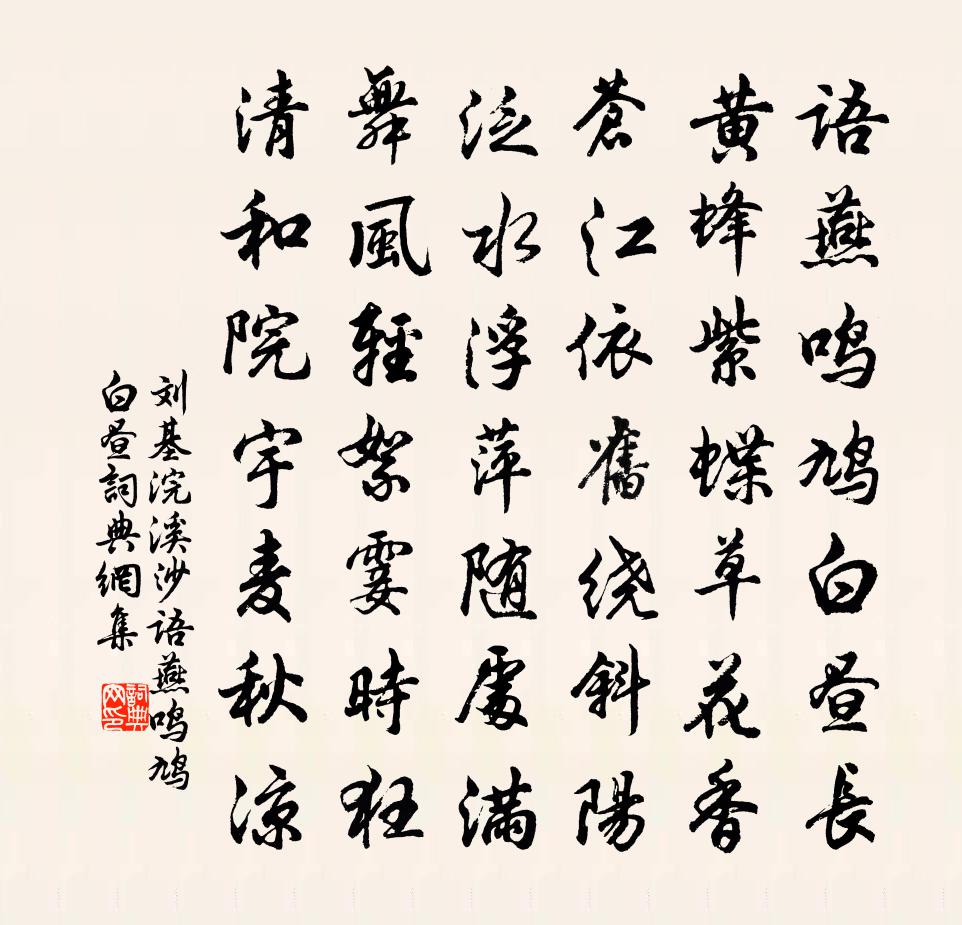 语燕鸣鸠白昼長
黄蜂紫蝶草花香
苍江依舊绕斜陽
泛水浮萍随處满
舞風輕絮霎時狂
清和院宇麦秋凉
刘基浣溪沙语燕鸣鸠
白昼詞典網集
詞典网印